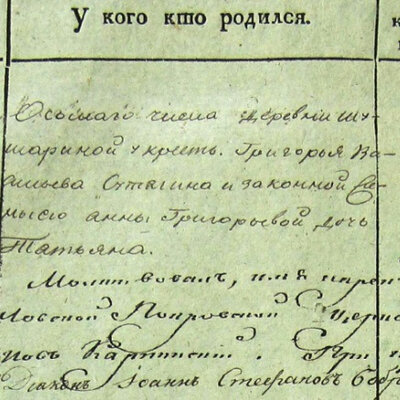 У кого кто родился.
Осьмаго числа деревни Шу-
шариной у крест. Григорья Ва-
сильева и законной же-
ны его Анны Григорьевой дочь
Татьяна.
Молитвовалъ, имя нарек
Покровской Церкв
Дiаконъ Iоаннъ Стефановъ